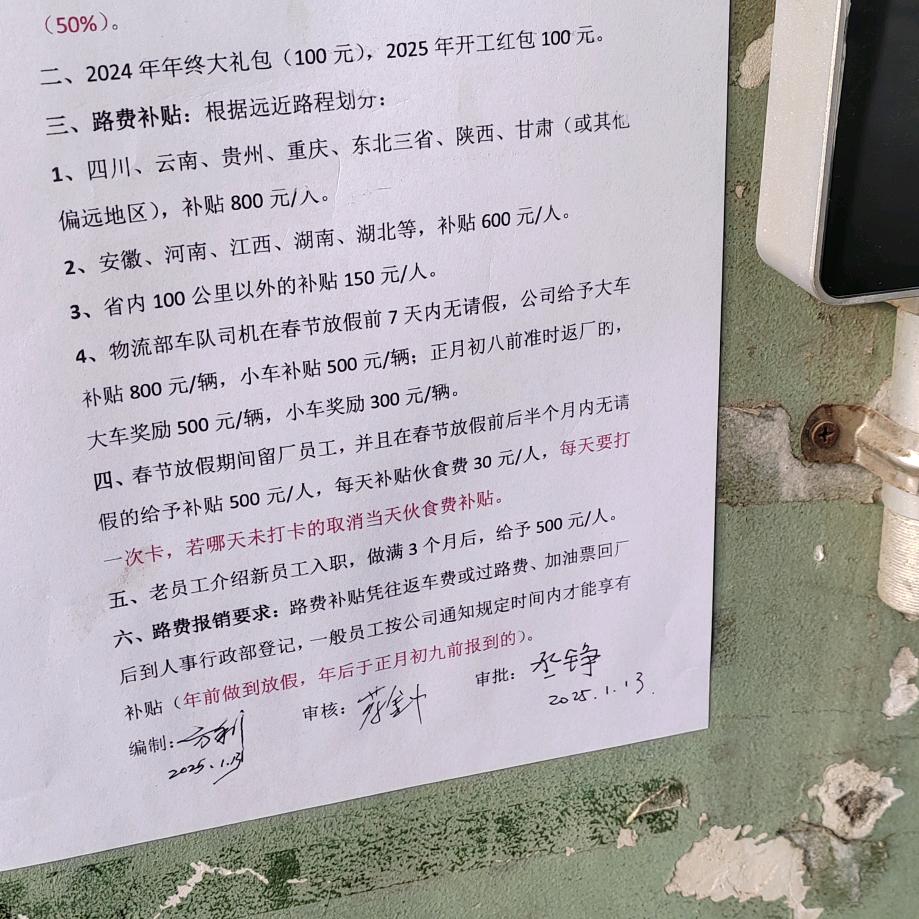 （50%）。
二、2024 年年终大礼包（100 元），2025 年开工红包 100 元。
三、路费补贴：根据远近路程划分：
1、四川、云南、贵州、重庆、东北三省、陕西、甘肃（或其他
偏远地区），补贴 800 元/人。
2、安徽、河南、江西、湖南、湖北等，补贴 600 元/人。
3、省内 100 公里以外的补贴 150 元/人。
4、物流部车队司机在春节放假前 7 天内无请假，公司给予大车
补贴 800 元/辆，小车补贴 500 元/辆；正月初八前准时返厂的，
大车奖励 500 元/辆，小车奖励 300 元/辆。
四、春节放假期间留厂员工，并且在春节放假前后半个月内无请
假的给予补贴 500 元/人，每天补贴伙食费 30 元/人，每天要打
一次卡，若哪天未打卡的取消当天伙食费补贴。
五、老员工介绍新员工入职，做满 3 个月后，给予 500 元/人。
六、路费报销要求：路费补贴凭往返车费或过路费、加油票回厂
后到人事行政部登记，一般员工按公司通知规定时间内才能享有
补贴（年前做到放假，年后于正月初九前报到的）。
编制： 审核： 审批：
2025.1.13 2025.1.13.